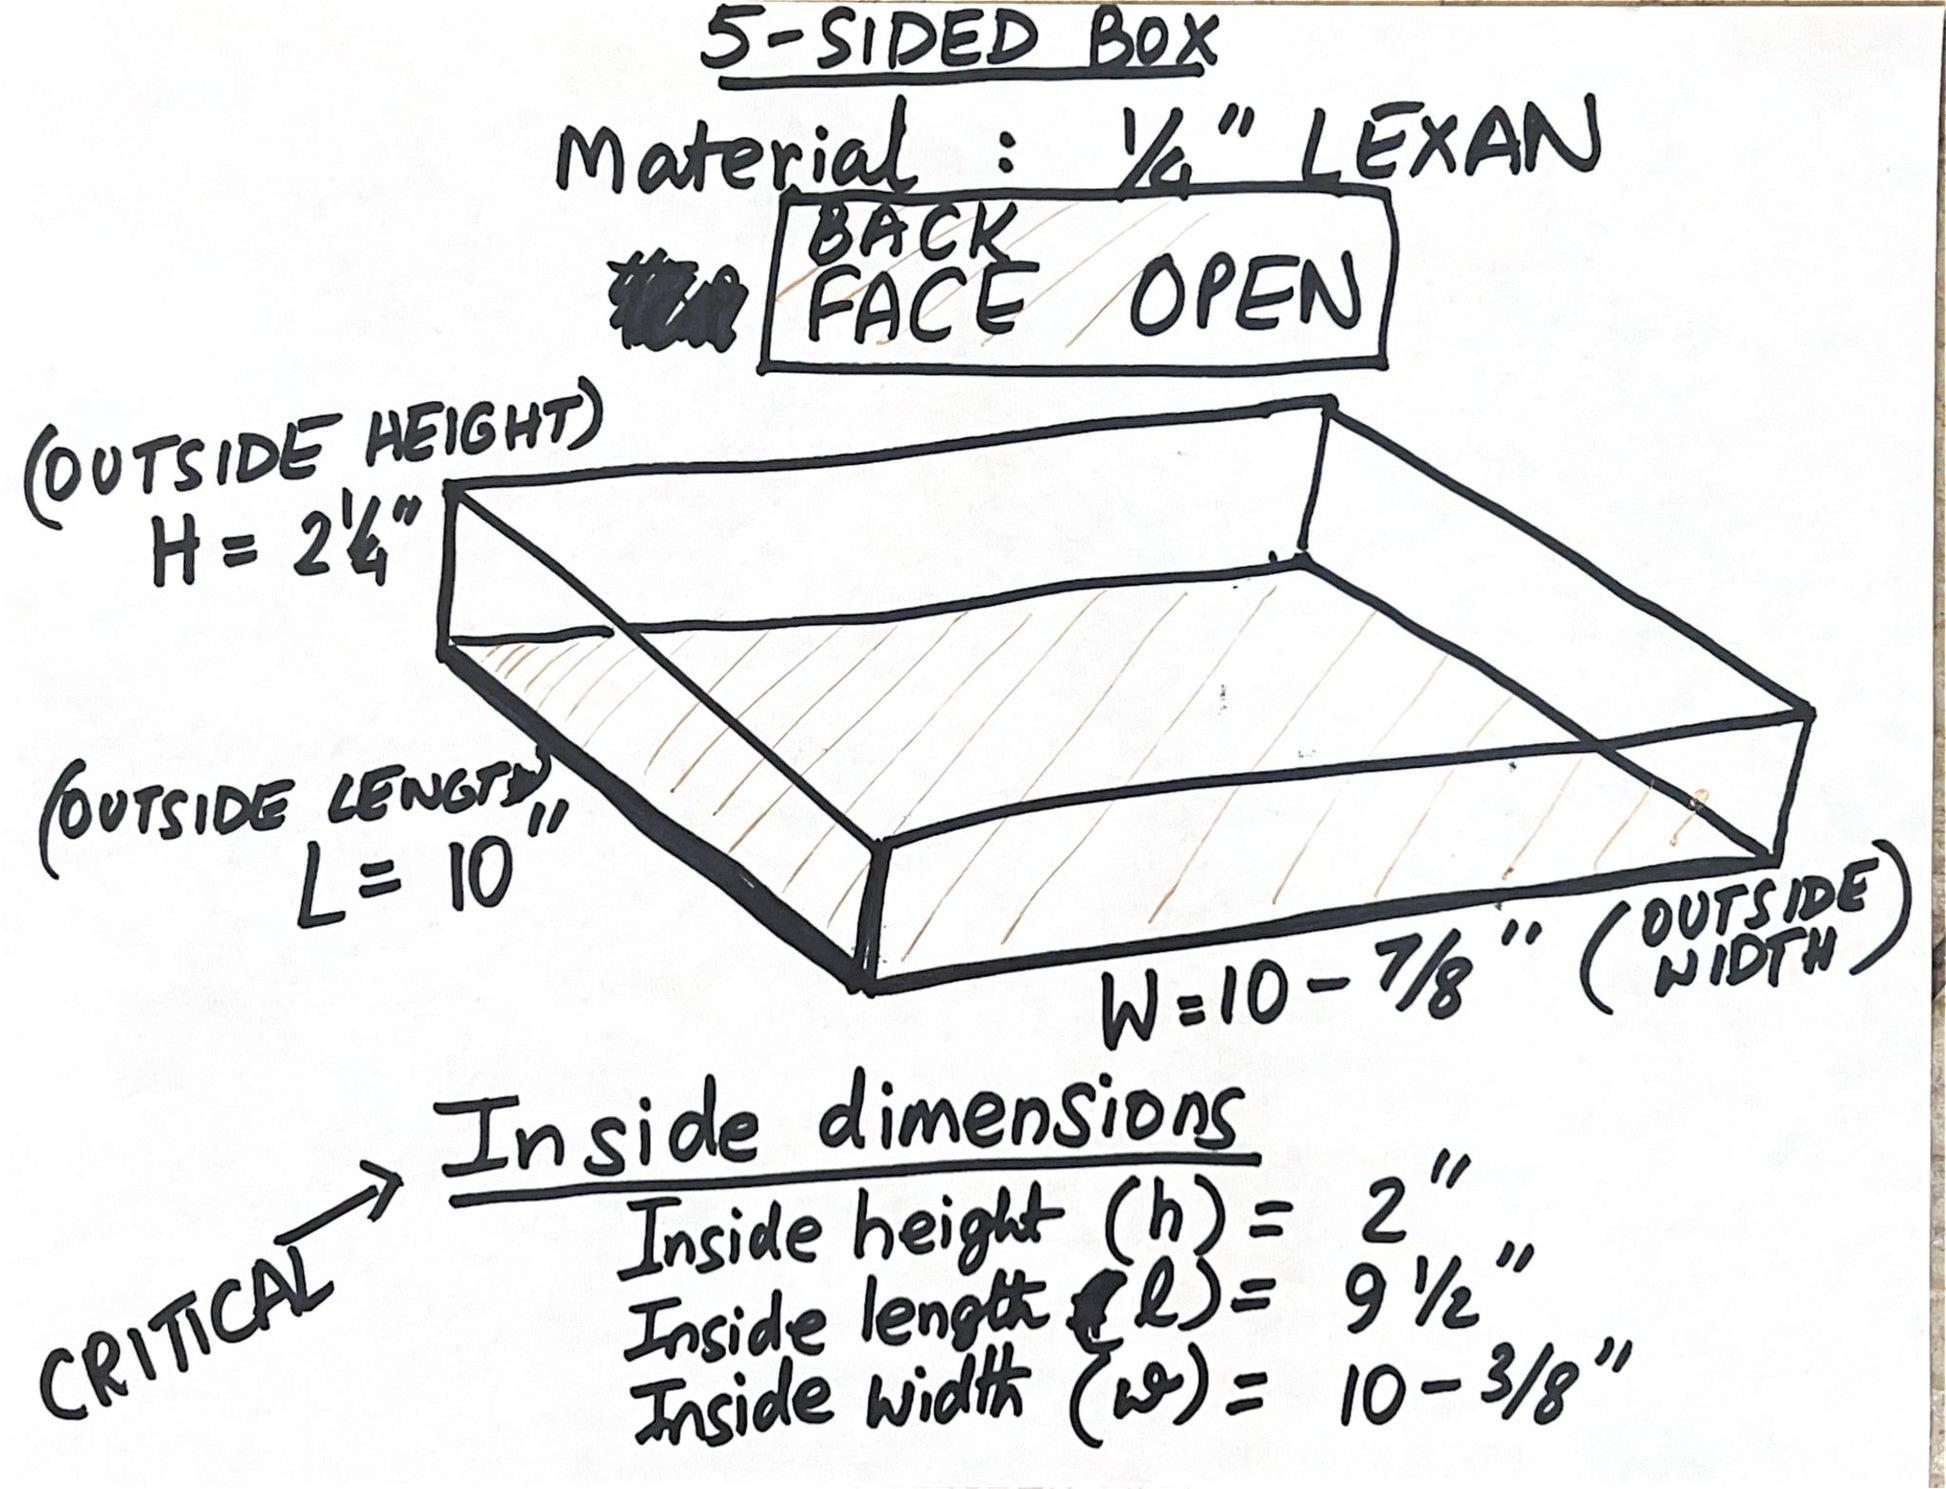 5-SIDED BOX
Material : 1/4" LEXAN
BACK
FACE OPEN
(OUTSIDE HEIGHT)
H = 2 1/4"
(OUTSIDE LENGTH)
L = 10"
W = 10 - 7/8" (OUTSIDE
WIDTH)
Inside dimensions
CRITICAL →
Inside height (h) = 2"
Inside length (l) = 9 1/2"
Inside width (w) = 10 - 3/8"